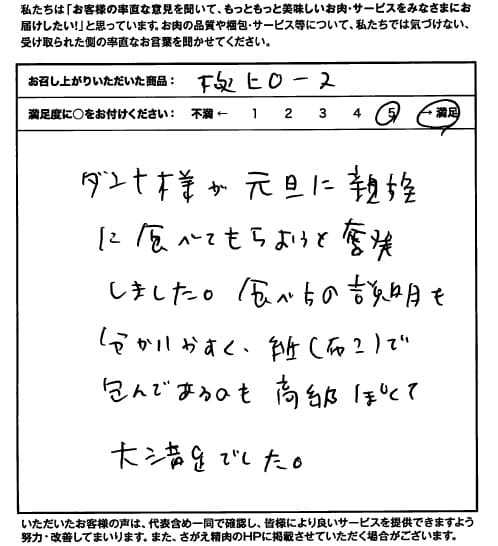 私たちは「お客様の率直な意見を聞いて、もっともっと美味しいお肉・サービスをみなさまにお
届けしたい!」と思っています。お肉の品質や梱包・サービス等について、私たちでは気づけない、
受け取られた側の率直なお言葉を聞かせてください。
お召し上がりいただいた商品： 極ヒロース
満足度に○をお付けください： 不満 ← 1 2 3 4 5 → 満足
ダンナ様が元旦に親族
に食べてもらおうと奮発
しました。食べ方の説明も
分かりやすく、紙(布?)で
包んであるのも高級ぽくて
大満足でした。
いただいたお客様の声は、代表含め一同で確認し、皆様により良いサービスを提供できますよう
努力・改善してまいります。また、さがえ精肉のHPに掲載させていただく場合がございます。